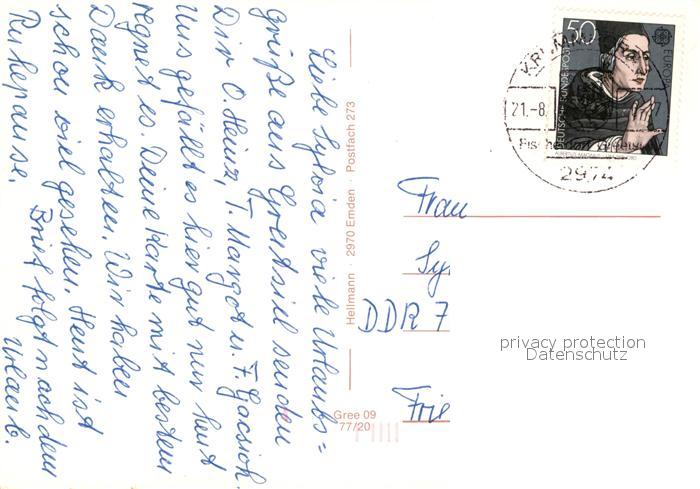 Liebe Sylvia viele Urlaubs=
grüße aus Greetsiel senden
Dir O. Heinz, T. Margot u. F. Gacsioch.
Uns gefällt es hier gut nur heut
regnet es. Deine Karte mit bestem
Dank erhalten. Wir haben
schon viel gesehen. Heut ist
Ruhepause. Brief folgt nach dem
Urlaub.
Hellmann · 2970 Emden · Postfach 273
Gree 09
77/20
50
DEUTSCHE BUNDESPOST
EUROPA
ALBERTUS MAGNUS
21.-8.
2974
Frau
Sy
DDR 7
Frie
privacy protection
Datenschutz